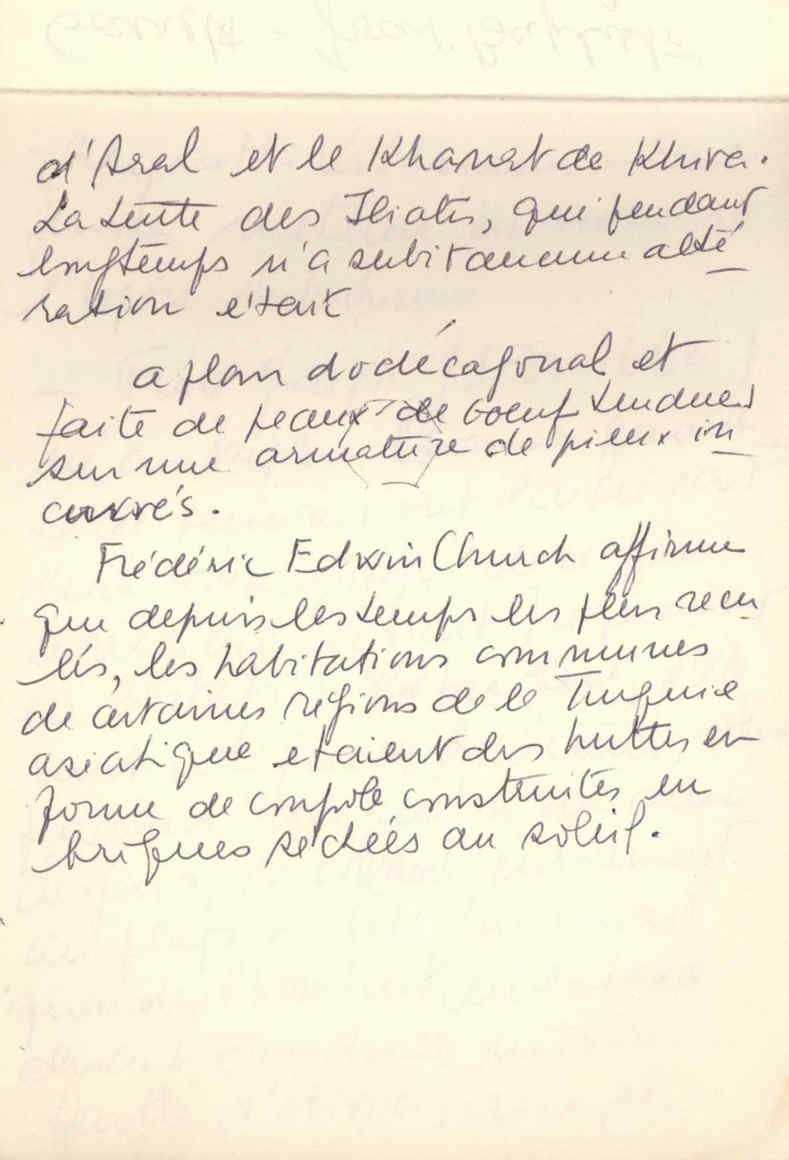 d'Aral et le Khanat de Khiva.
La tente des Iliates, qui pendant
longtemps n'a subit aucune alté
ration était
a plan dodécagonal et
faite de peaux de boeuf tendues
sur une armature de pieux in
curvés.
Frédéric Edwin Church affirme
que depuis les temps les plus recu
lés, les habitations communes
de certaines régions de la Turquie
asiatique etaient des huttes en
forme de coupole construites en
briques sechées au soleil.